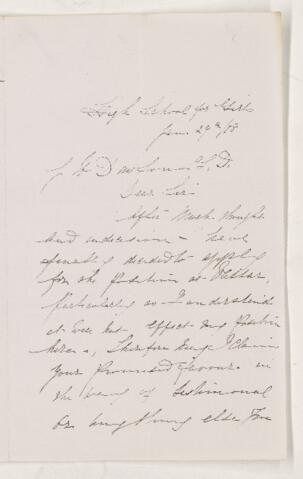 High School for Girls
June 29th /78
Dear Sir
After Much thought
And indecision - I have
finally decided to apply
for the position at
particularly as I understand
it will not effect my position
here &, therefore may I claim
Your Promised favour in
the way of testimonial
or anything else You